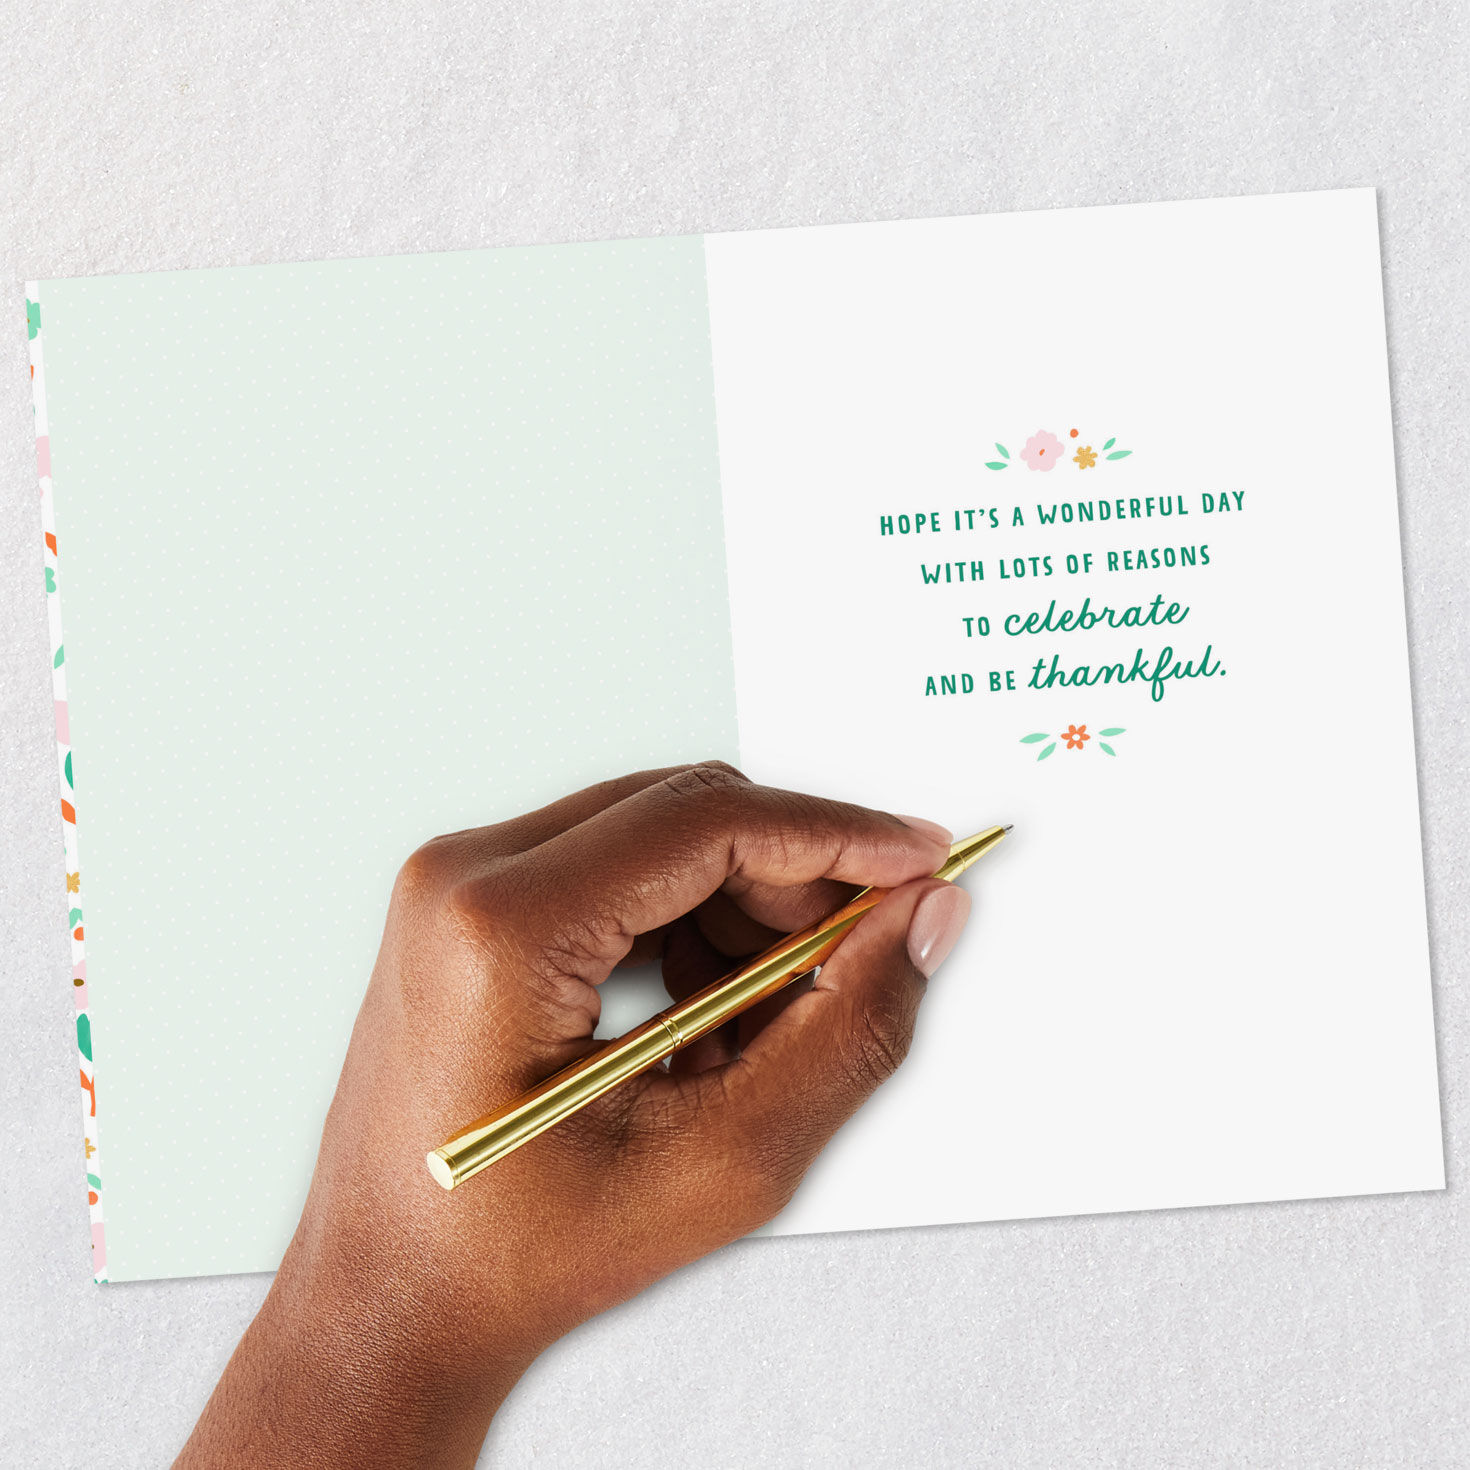 HOPE IT'S A WONDERFUL DAY
WITH LOTS OF REASONS
TO celebrate
AND BE thankful.